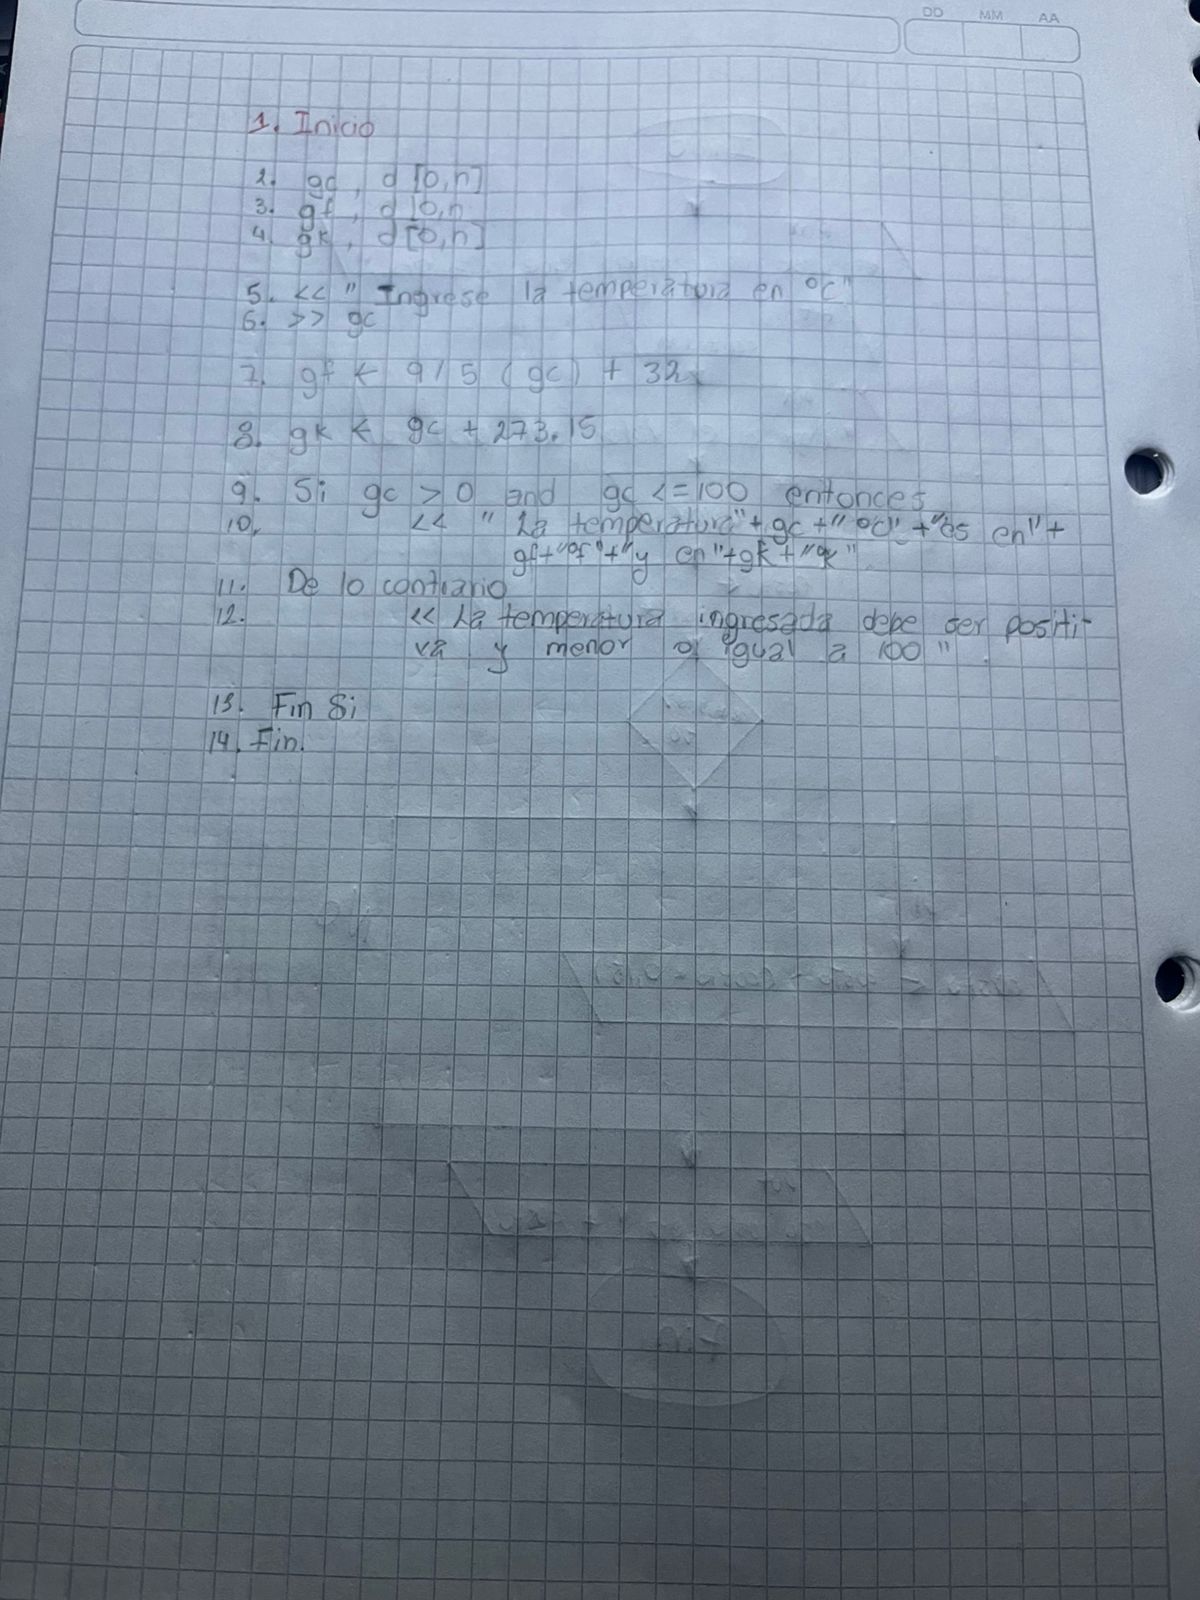 DD MM AA
1. Inicio
2. gc, d [0,n]
3. gf, d [0,n
4. gk, d [0,n]
5. << " Ingrese la temperatura en °C"
6. >> gc
7. gf ← 9/5 (gc) + 32
8. gk ← gc + 273.15
9. Si gc > 0 and gc <= 100 entonces
10. << " La temperatura"+gc+" °C"+"es en"+
gf+"°f"+"y en"+gk+"°k"
11. De lo contrario
12. << La temperatura ingresada debe ser positi-
va y menor o igual a 100"
13. Fin Si
14. Fin.